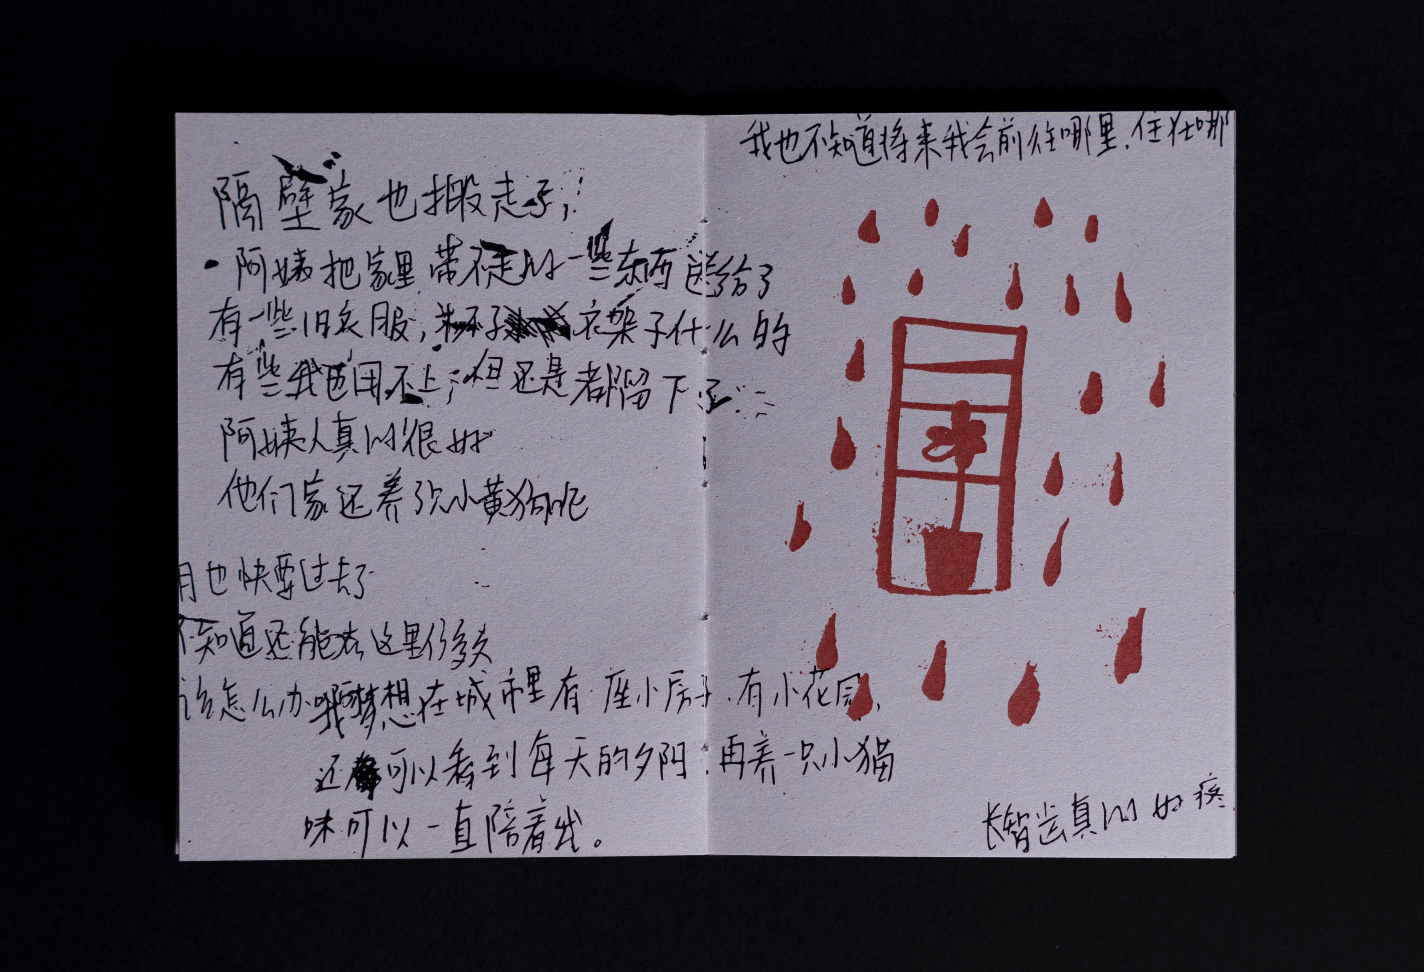 隔壁家也搬走了,
阿姨把家里带不走的一些东西送给了
有一些旧衣服, 衣架子什么的
有些我也用不上, 但还是都留下了
阿姨人真的很好
他们家还养了只小黄狗呢
月也快要过去了
不知道还能在这里住多久
该怎么办 我梦想在城市里有座小房子. 有小花园,
还可以看到每天的夕阳. 再养一只小猫
咪可以一直陪着我。
我也不知道将来我会前往哪里. 住在哪
长智齿真的好疼